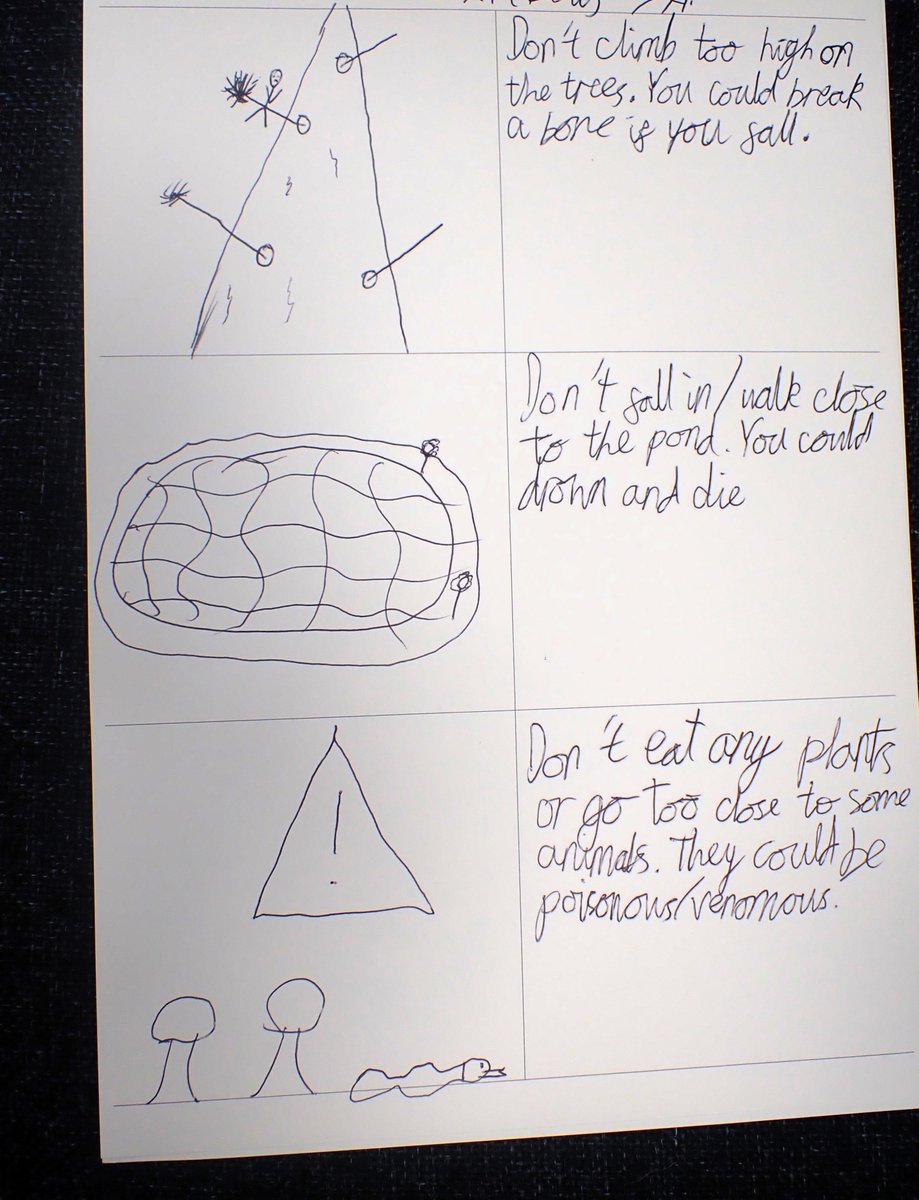 Don't climb too high on
the trees. You could break
a bone if you fall.
Don't fall in/walk close
to the pond. You could
drown and die
Don't eat any plants
or go too close to some
animals. They could be
poisonous/venomous.